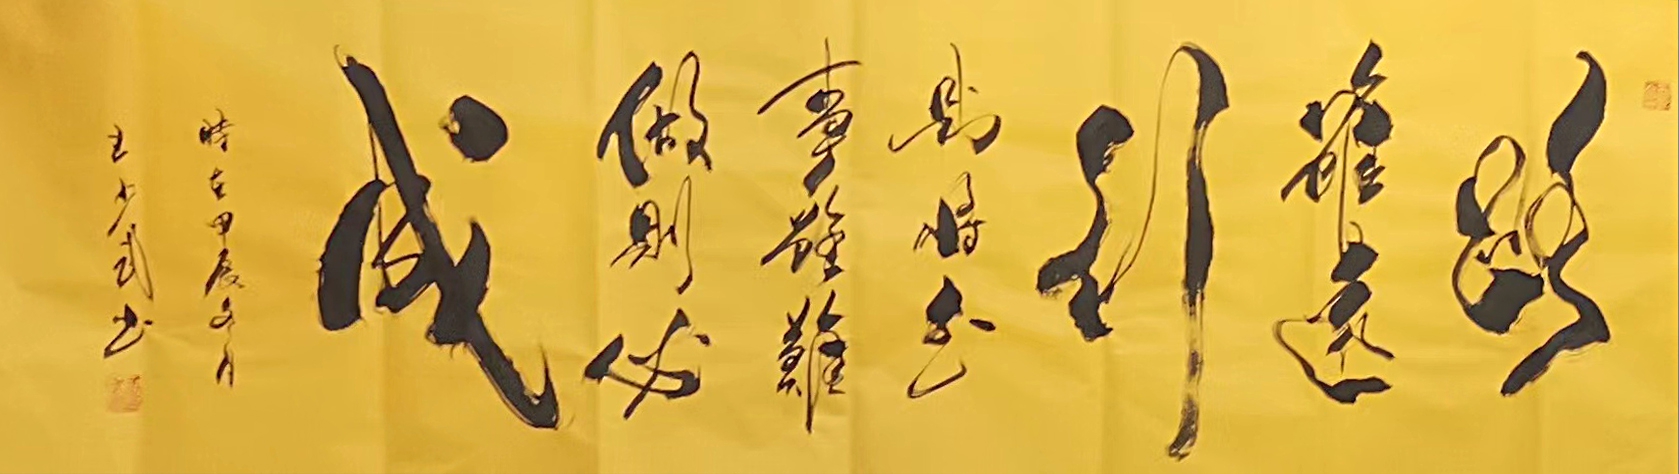 路
雖遠
行
則將至
事雖難
做則必
成
時在甲辰冬月
王少武书